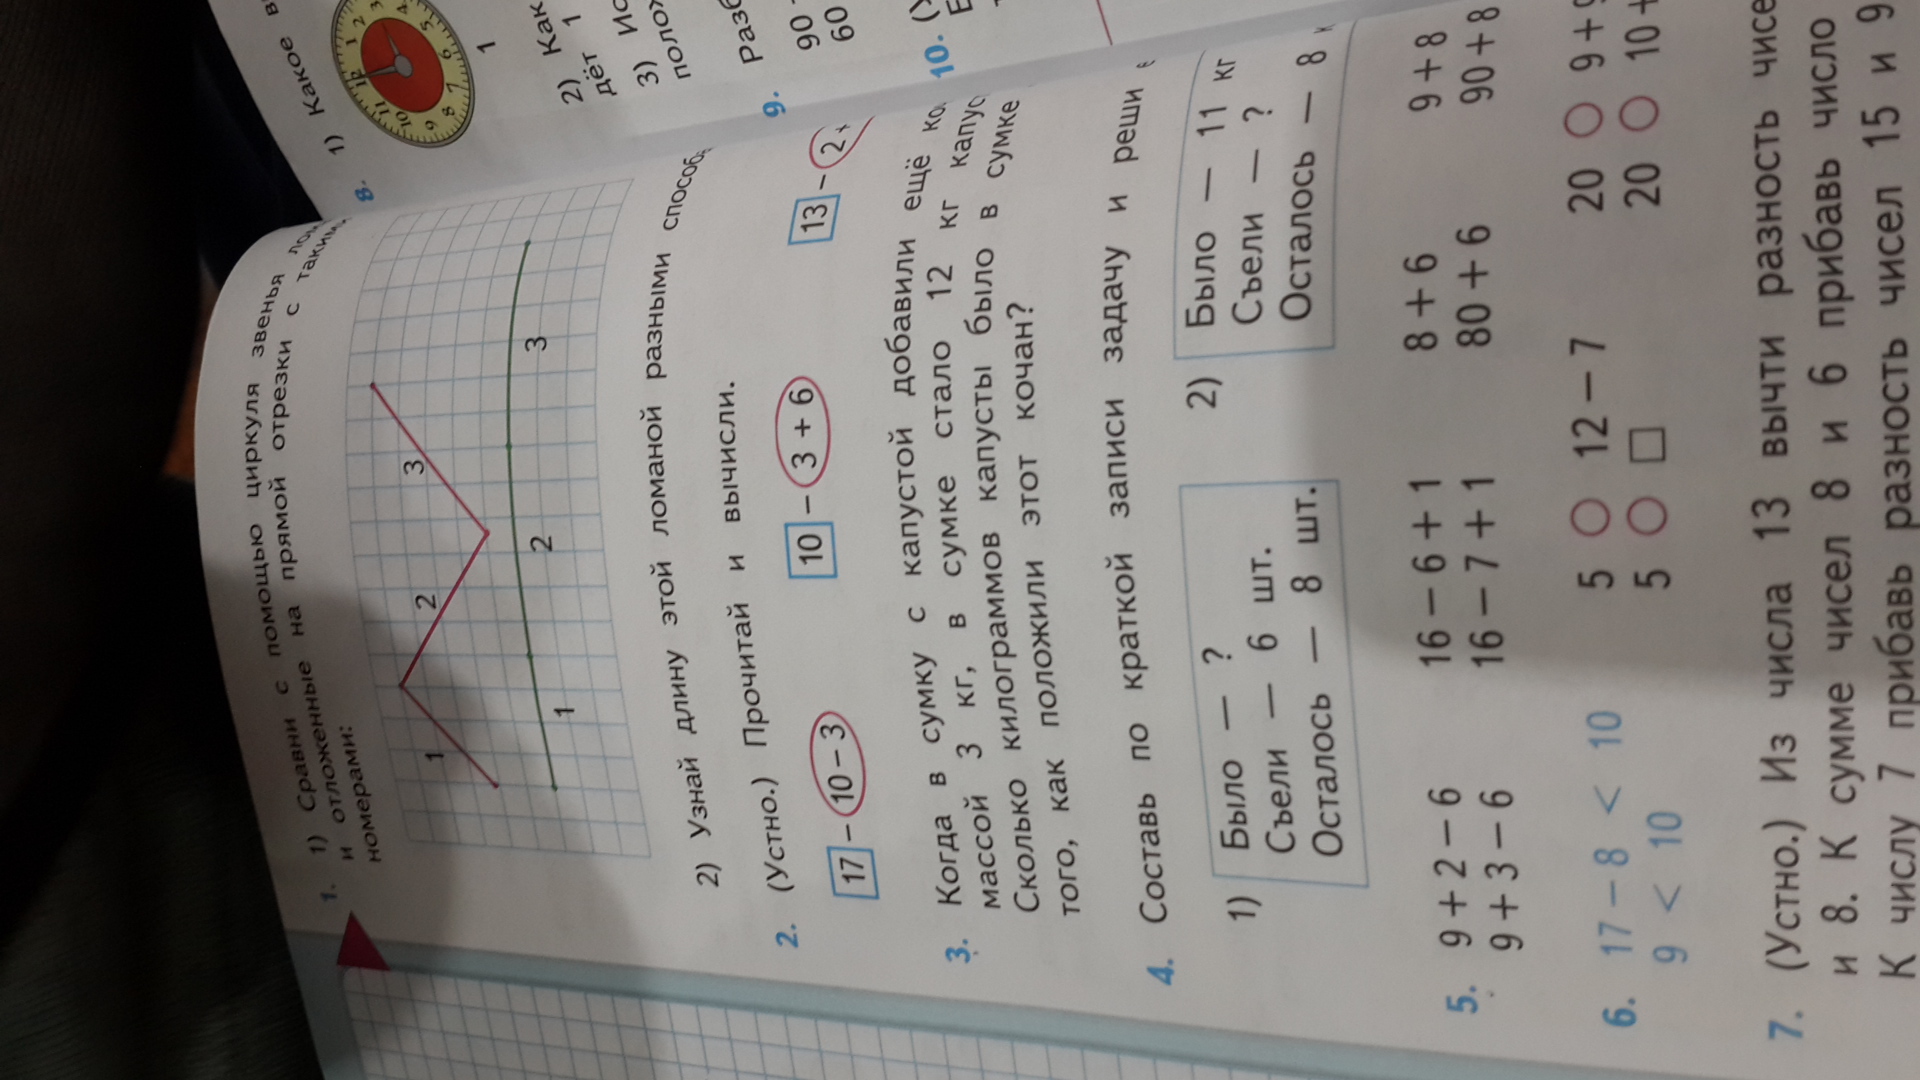 1. 1) Сравни с помощью циркуля звенья
и отложенные на прямой отрезки с
номерами:
1 2 3
1 2 3
2) Узнай длину этой ломаной разными
2. (Устно.) Прочитай и вычисли.
17 − 10 − 3 10 − 3 + 6 13 − 2 +
3. Когда в сумку с капустой добавили ещё
массой 3 кг, в сумке стало 12 кг
Сколько килограммов капусты было в сумке
того, как положили этот кочан?
4. Составь по краткой записи задачу и реши
1) Было — ?
Съели — 6 шт.
Осталось — 8 шт.
2) Было — 11 кг
Съели — ?
Осталось — 8
5. 9 + 2 − 6 16 − 6 + 1 8 + 6 9 + 8
9 + 3 − 6 16 − 7 + 1 80 + 6 90 + 8
6. 17 − 8 < 10 5 ○ 12 − 7 20 ○ 9 +
9 < 10 5 ○ □ 20 ○ 10 +
7. (Устно.) Из числа 13 вычти разность
и 8. К сумме чисел 8 и 6 прибавь число
К числу 7 прибавь разность чисел 15 и 9
8. 1) Какое
12 1 2 3 4 5 6 7 8 9 10 11
1
2) Как
дёт 1
3)
9.
90
60
10.